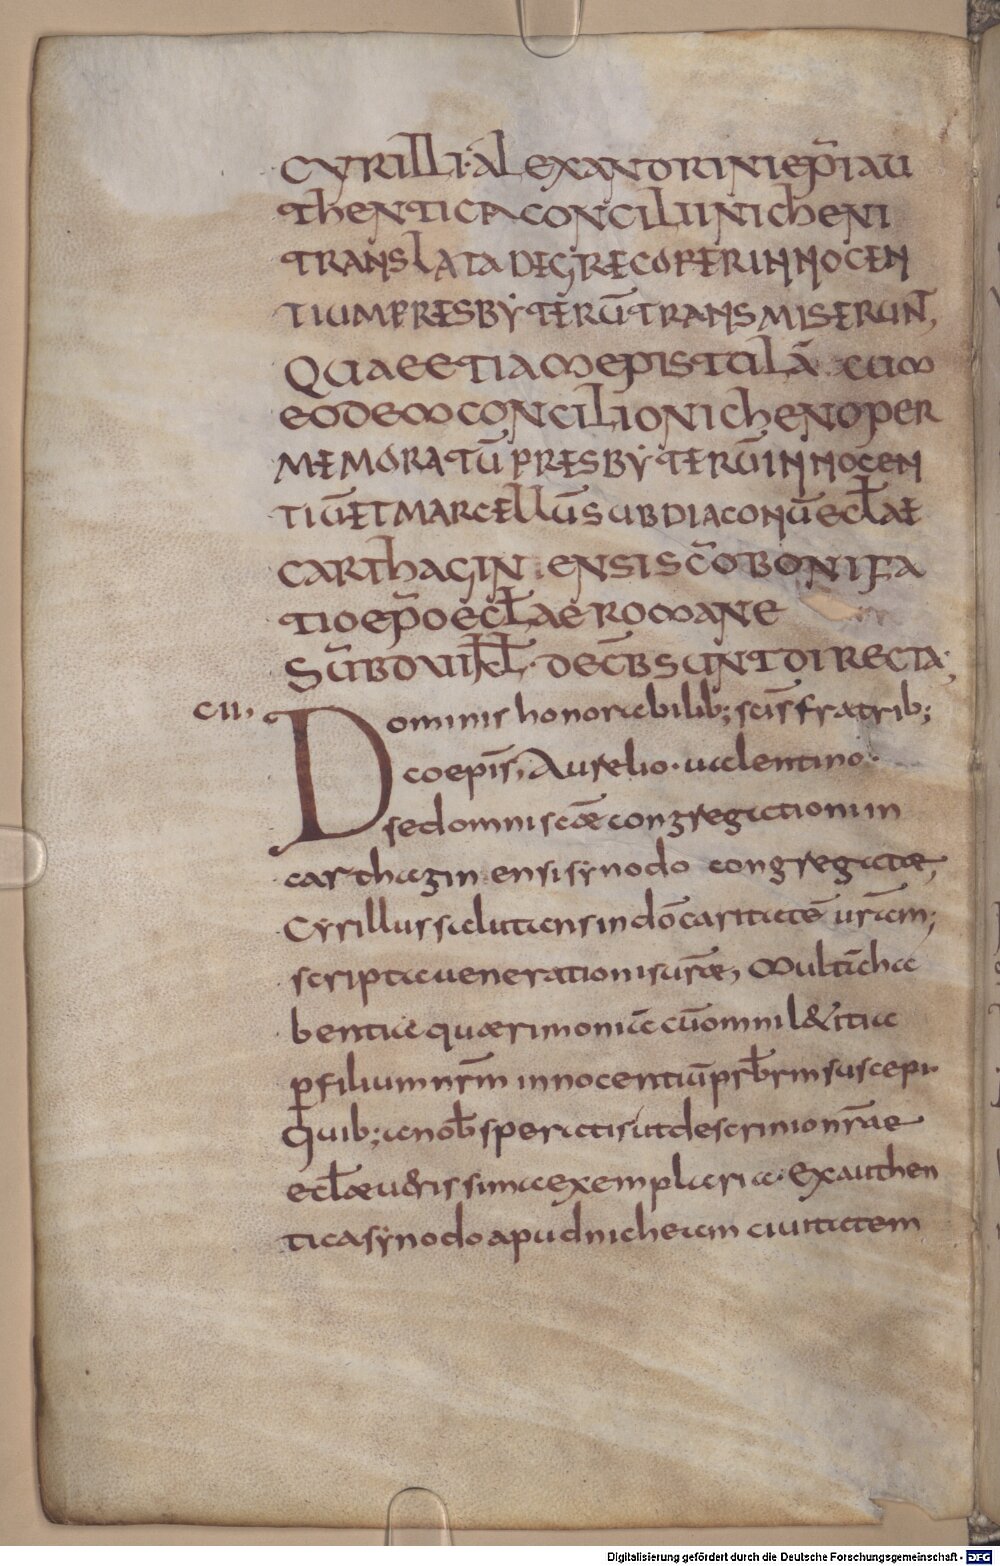 CYRILLI·ALEXANDRINIEP̄IAU
THENTICACONCILIINICHENI
TRANSLATADEGRECOPERINNOCEN
TIUMPRESBYTERŪTRANSMISERUNT,
QUAEETIAMEPISTULĀ CUM
EODEMCONCILIONICHENOPER
MEMORATŪPRESBYTERŪINNOCEN
TIŪETMARCELLŪSUBDIACONŪECŁAE
CARTHAGINENSISC̄OBONIFA
TIOEP̄OECŁAEROMANE
S̄UBDVIKŁ·DEC̄BSUNTDIRECTA;
CII, Dominis honorabilib; scīs fratrib;
coepīs, Aurelio·ualentino·
sedomniscāecongregationiin
carthaginensisynodo congregatae,
Cyrillussalutansindn̄ocaritatē ur̄am;
scriptauenerationisur̄ae, Multāha
bentiaquaerimoniācūomnil&itia
p̲filiumnr̄minnocentiūprb̄rmsuscepi·
quib;anob̄speratisutdescrinionr̄ae
ecłaeuerissimaexemplaria·Exauthen
ticasynodoapudnicheamciuitatem
Digitalisierung gefördert durch die Deutsche Forschungsgemeinschaft - DFG